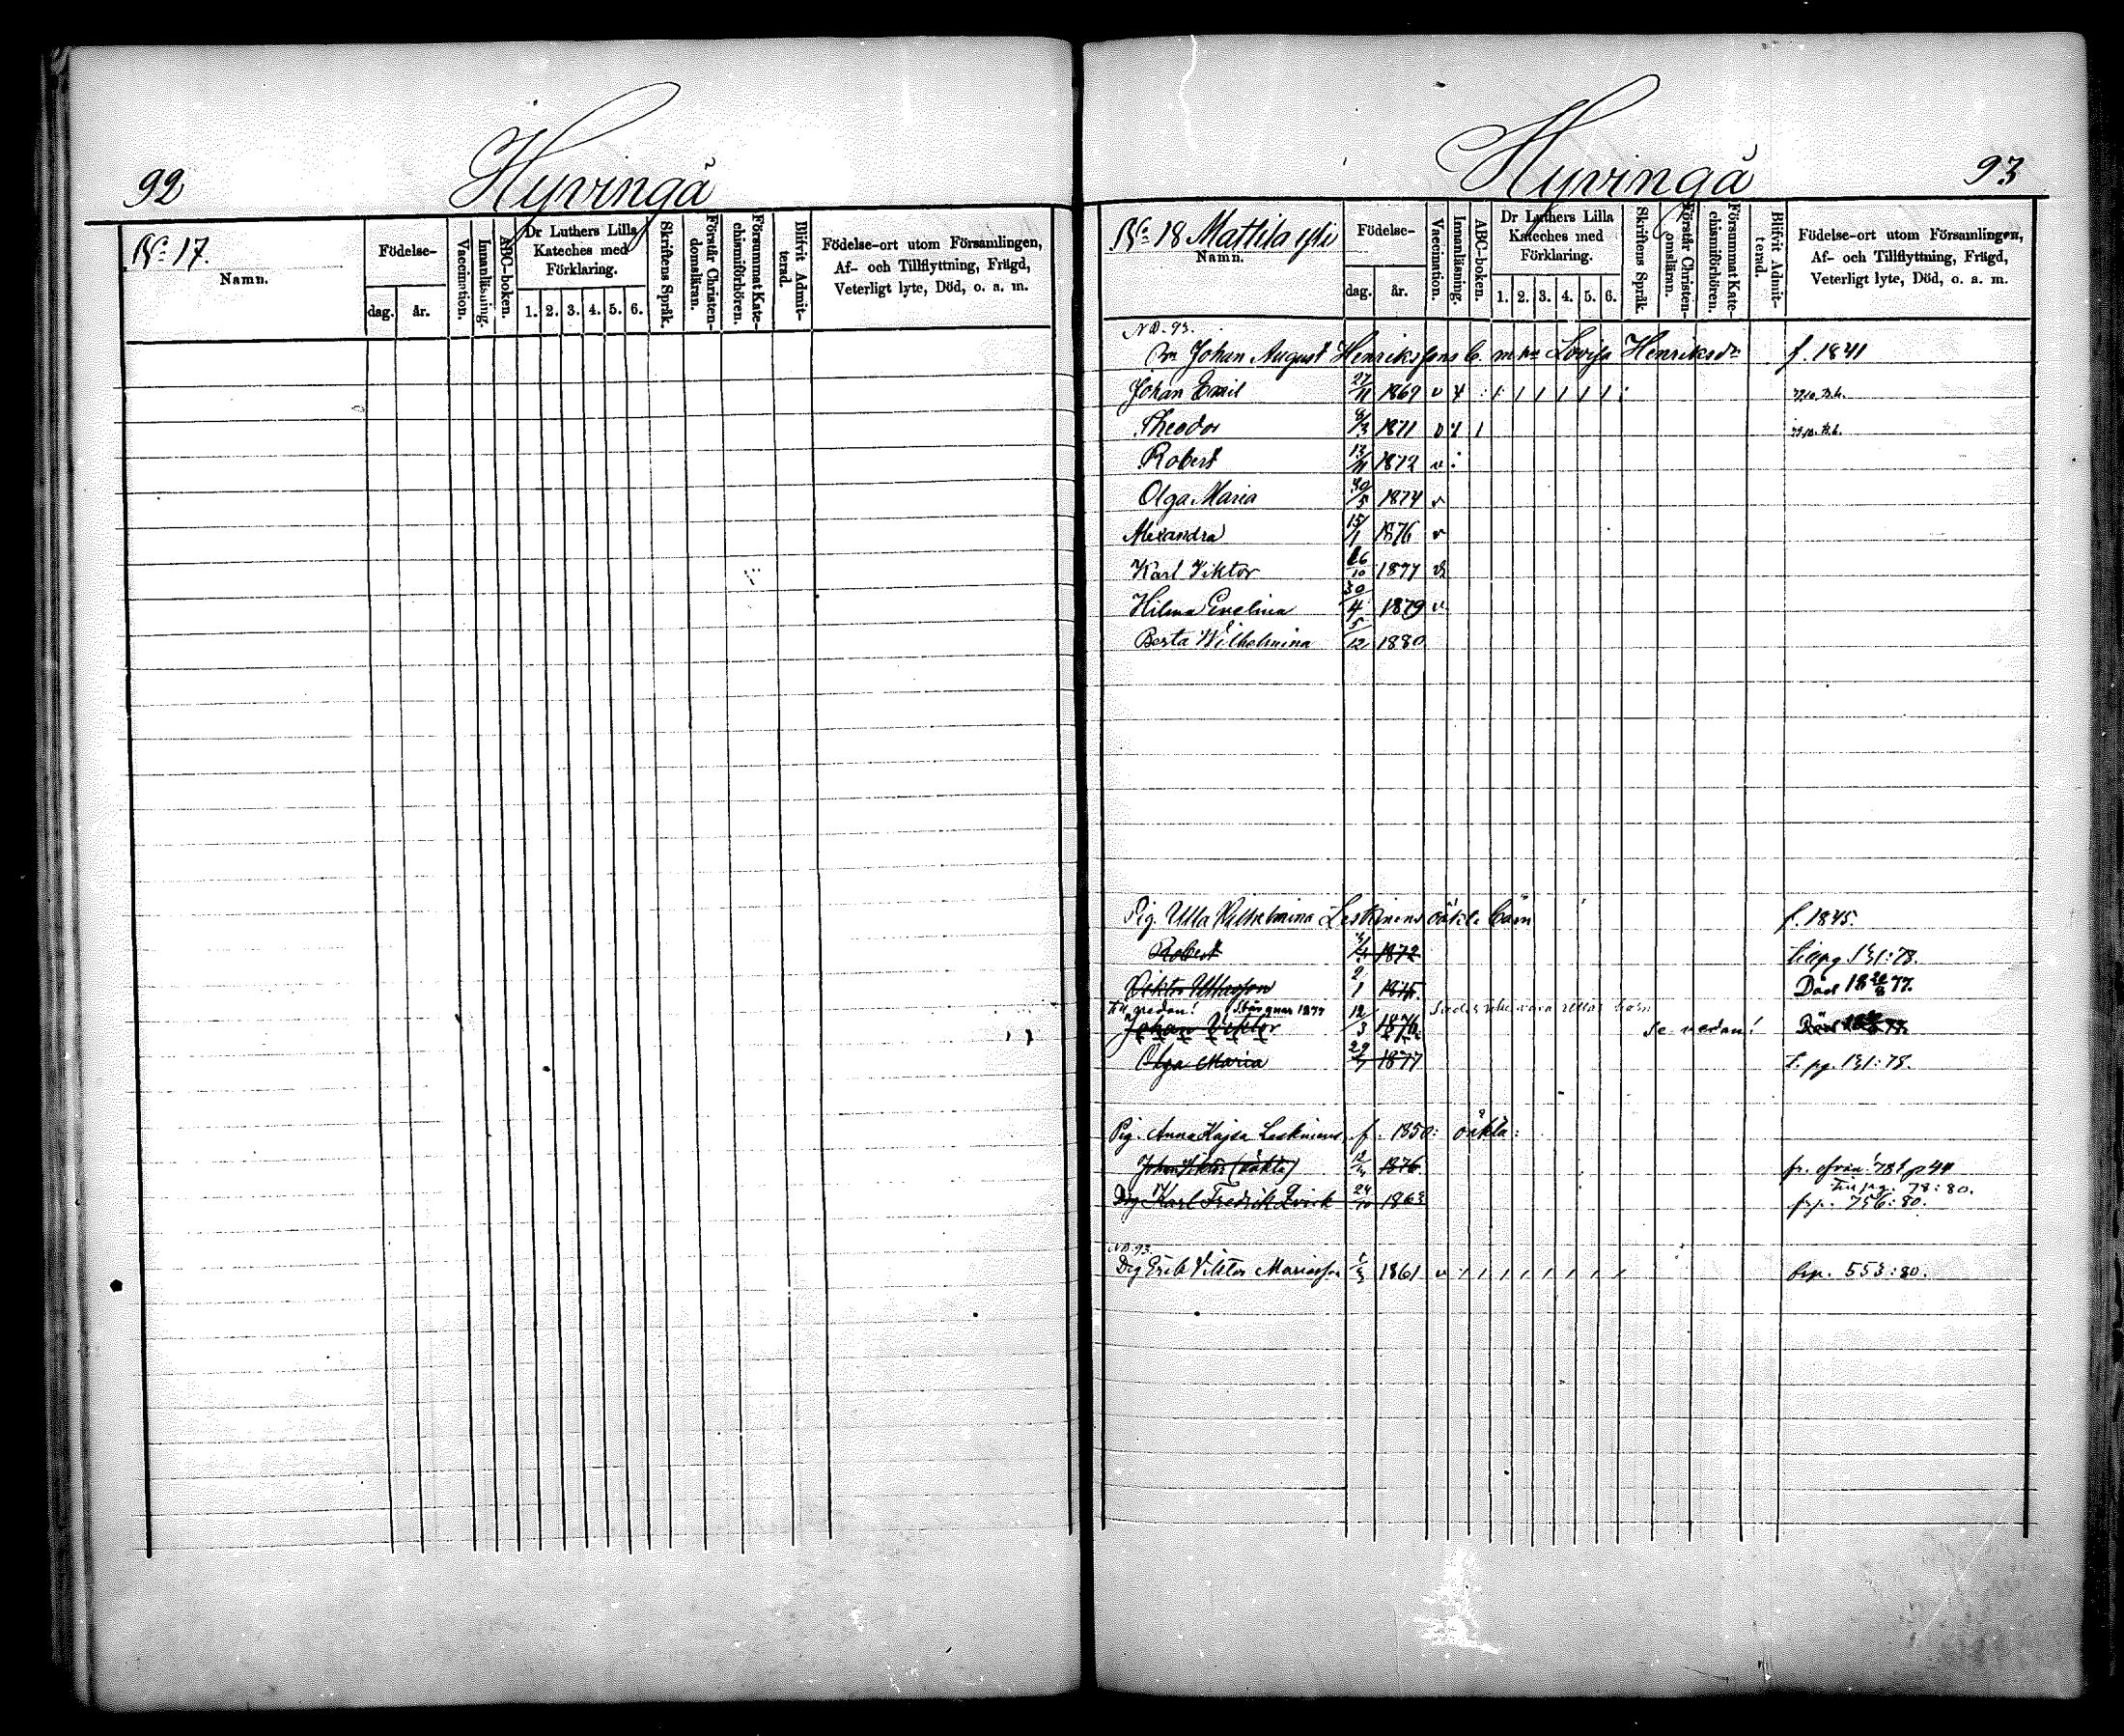 92
Hyvingå
No 17.
Namn.
Födelse-
dag.
år.
Vaccination.
Innanläsning.
ABC-boken.
Dr Luthers Lilla
Kateches med
Förklaring.
1. 2. 3. 4. 5. 6.
Skriftens Språk.
Förstår Christen-
domsläran.
Försummat Kate-
chismiförhören.
Blifvit Admit-
terad.
Födelse-ort utom Församlingen,
Af- och Tillflyttning, Frägd,
Veterligt lyte, Död, o. a. m.
Hyvingå
93
No 18 Mattila
Namn.
Födelse-
dag.
år.
Vaccination.
Innanläsning.
ABC-boken.
Dr Luthers Lilla
Kateches med
Förklaring.
1. 2. 3. 4. 5. 6.
Skriftens Språk.
Förstår Christen-
domsläran.
Försummat Kate-
chismiförhören.
Blifvit Admit-
terad.
Födelse-ort utom Församlingen,
Af- och Tillflyttning, Frägd,
Veterligt lyte, Död, o. a. m.
ND. 93.
Johan August Henrikssons b. m. hu Lovisa Henriksdr f. 1841
Johan Emil 27/11 1869 v
Theodor 8/3 1871 v
Robert 13/11 1872 v
Olga Maria 30/5 1874 v
Alexandra 15/1 1876 v
Karl Viktor 26/10 1877 v
Hilma Evelina 30/4 1879 v
Berta Wilhelmina 5/12 1880
Pig. Ulla Vilhelmina Leskinens oäkta barn f. 1845.
Robert 1872 till pg 131:78.
Viktor Ullasson 2/1 1875. Död 18 20/8 77.
nedan!
Johan Viktor 12/3 1876 se nedan!
Olga Maria 29 1877 t. pg. 131:78.
Pig. Anna Kajsa Leskinens f. 1850: oäkta:
Johan Viktor (oäkta) 12/3 1876
till pg. 78:80.
Drg Karl Fredrik Qvick 24/10 1863 frp. 756:80.
ND. 93.
Drg Erik Viktor Mariasson 1861 v frp. 553:80.